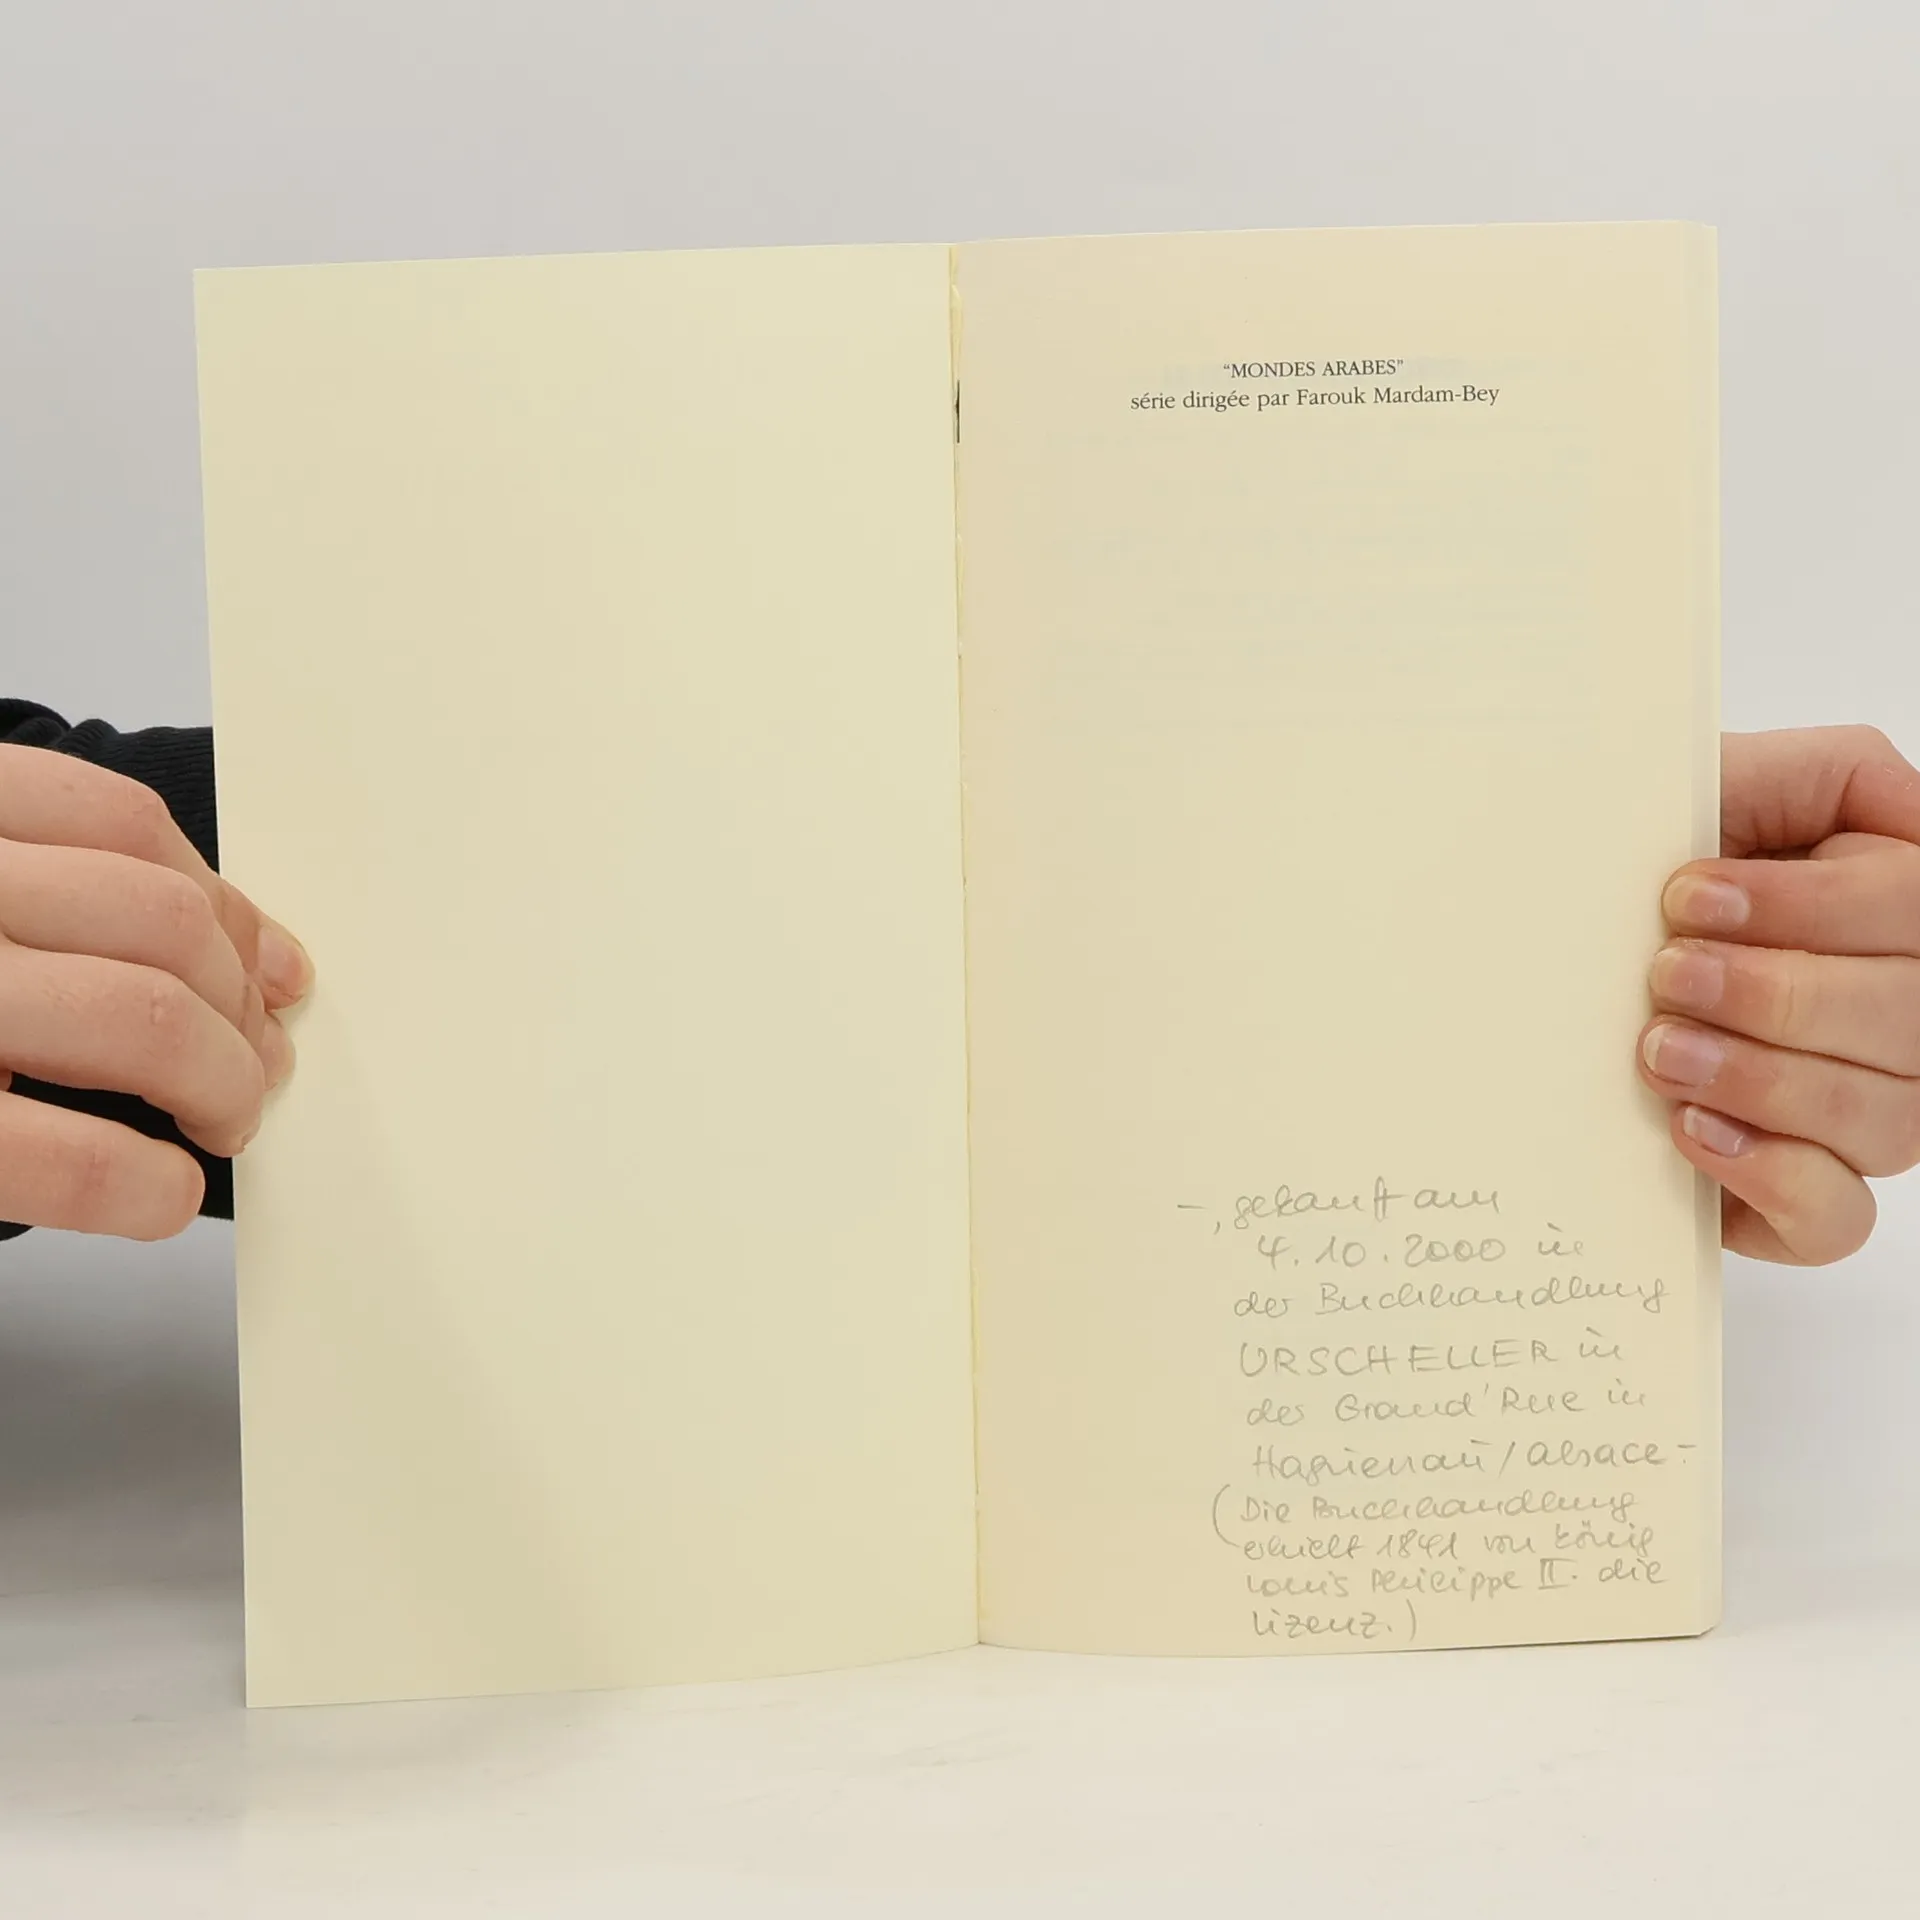 “MONDES ARABES”
série dirigée par Farouk Mardam-Bey
–, gekauft am
4.10.2000 in
der Buchhandlung
URSCHELLER in
der Grand'Rue in
Haguenau/Alsace –
(Die Buchhandlung
erhielt 1841 von König
Louis Philippe II. die
Lizenz.)